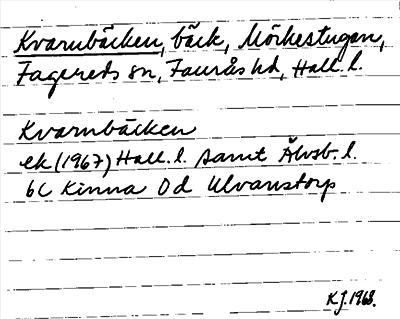 Kvarnbäcken, bäck, Mörkestugan,
Fagereds sn, Faurås hd, Hall. l.
Kvarnbäcken
ek (1967) Hall. l. samt Älvsb. l.
6C Kinna 0d Ulvanstorp
K.J. 1968.